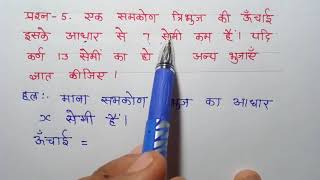 प्रश्न-5. एक समकोण त्रिभुज की ऊँचाई
इसके आधार से 7 सेमी कम है। यदि
कर्ण 13 सेमी का हो अन्य भुजाएँ
ज्ञात कीजिए।
हल:- माना समकोण भुज का आधार
x सेमी है।
ऊँचाई =